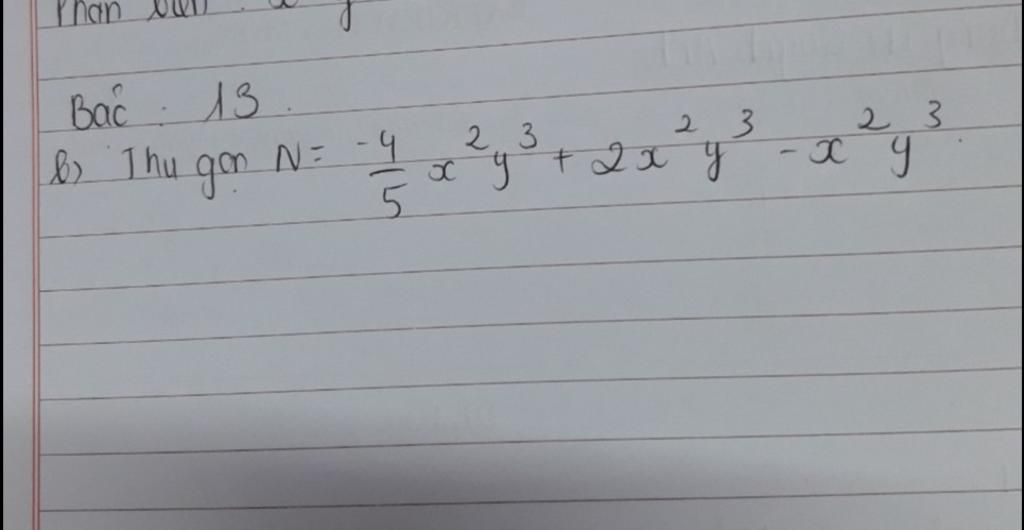 Phần biến :
Bậc : 13.
b) Thu gọn N = -4/5 x²y³ + 2x²y³ - x²y³.